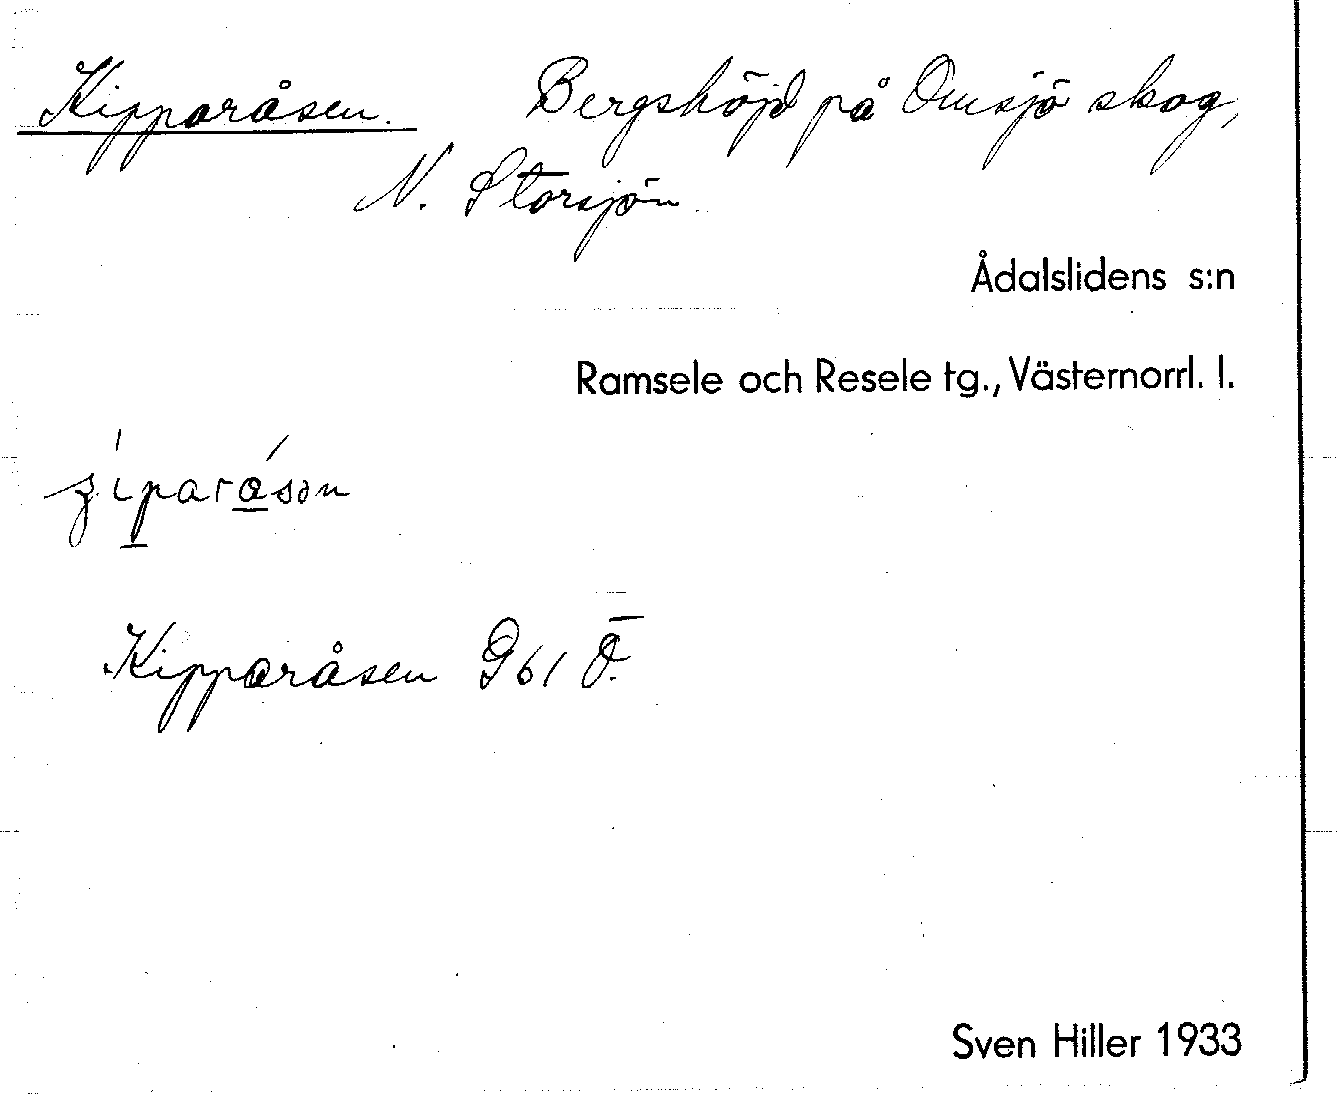 Kipparåsen. Bergshöjd på Omsjö skog,
N. Storsjön
Ådalslidens s:n
Ramsele och Resele tg., Västernorrl. l.
Kipparåsen G 61 Ö.
Sven Hiller 1933